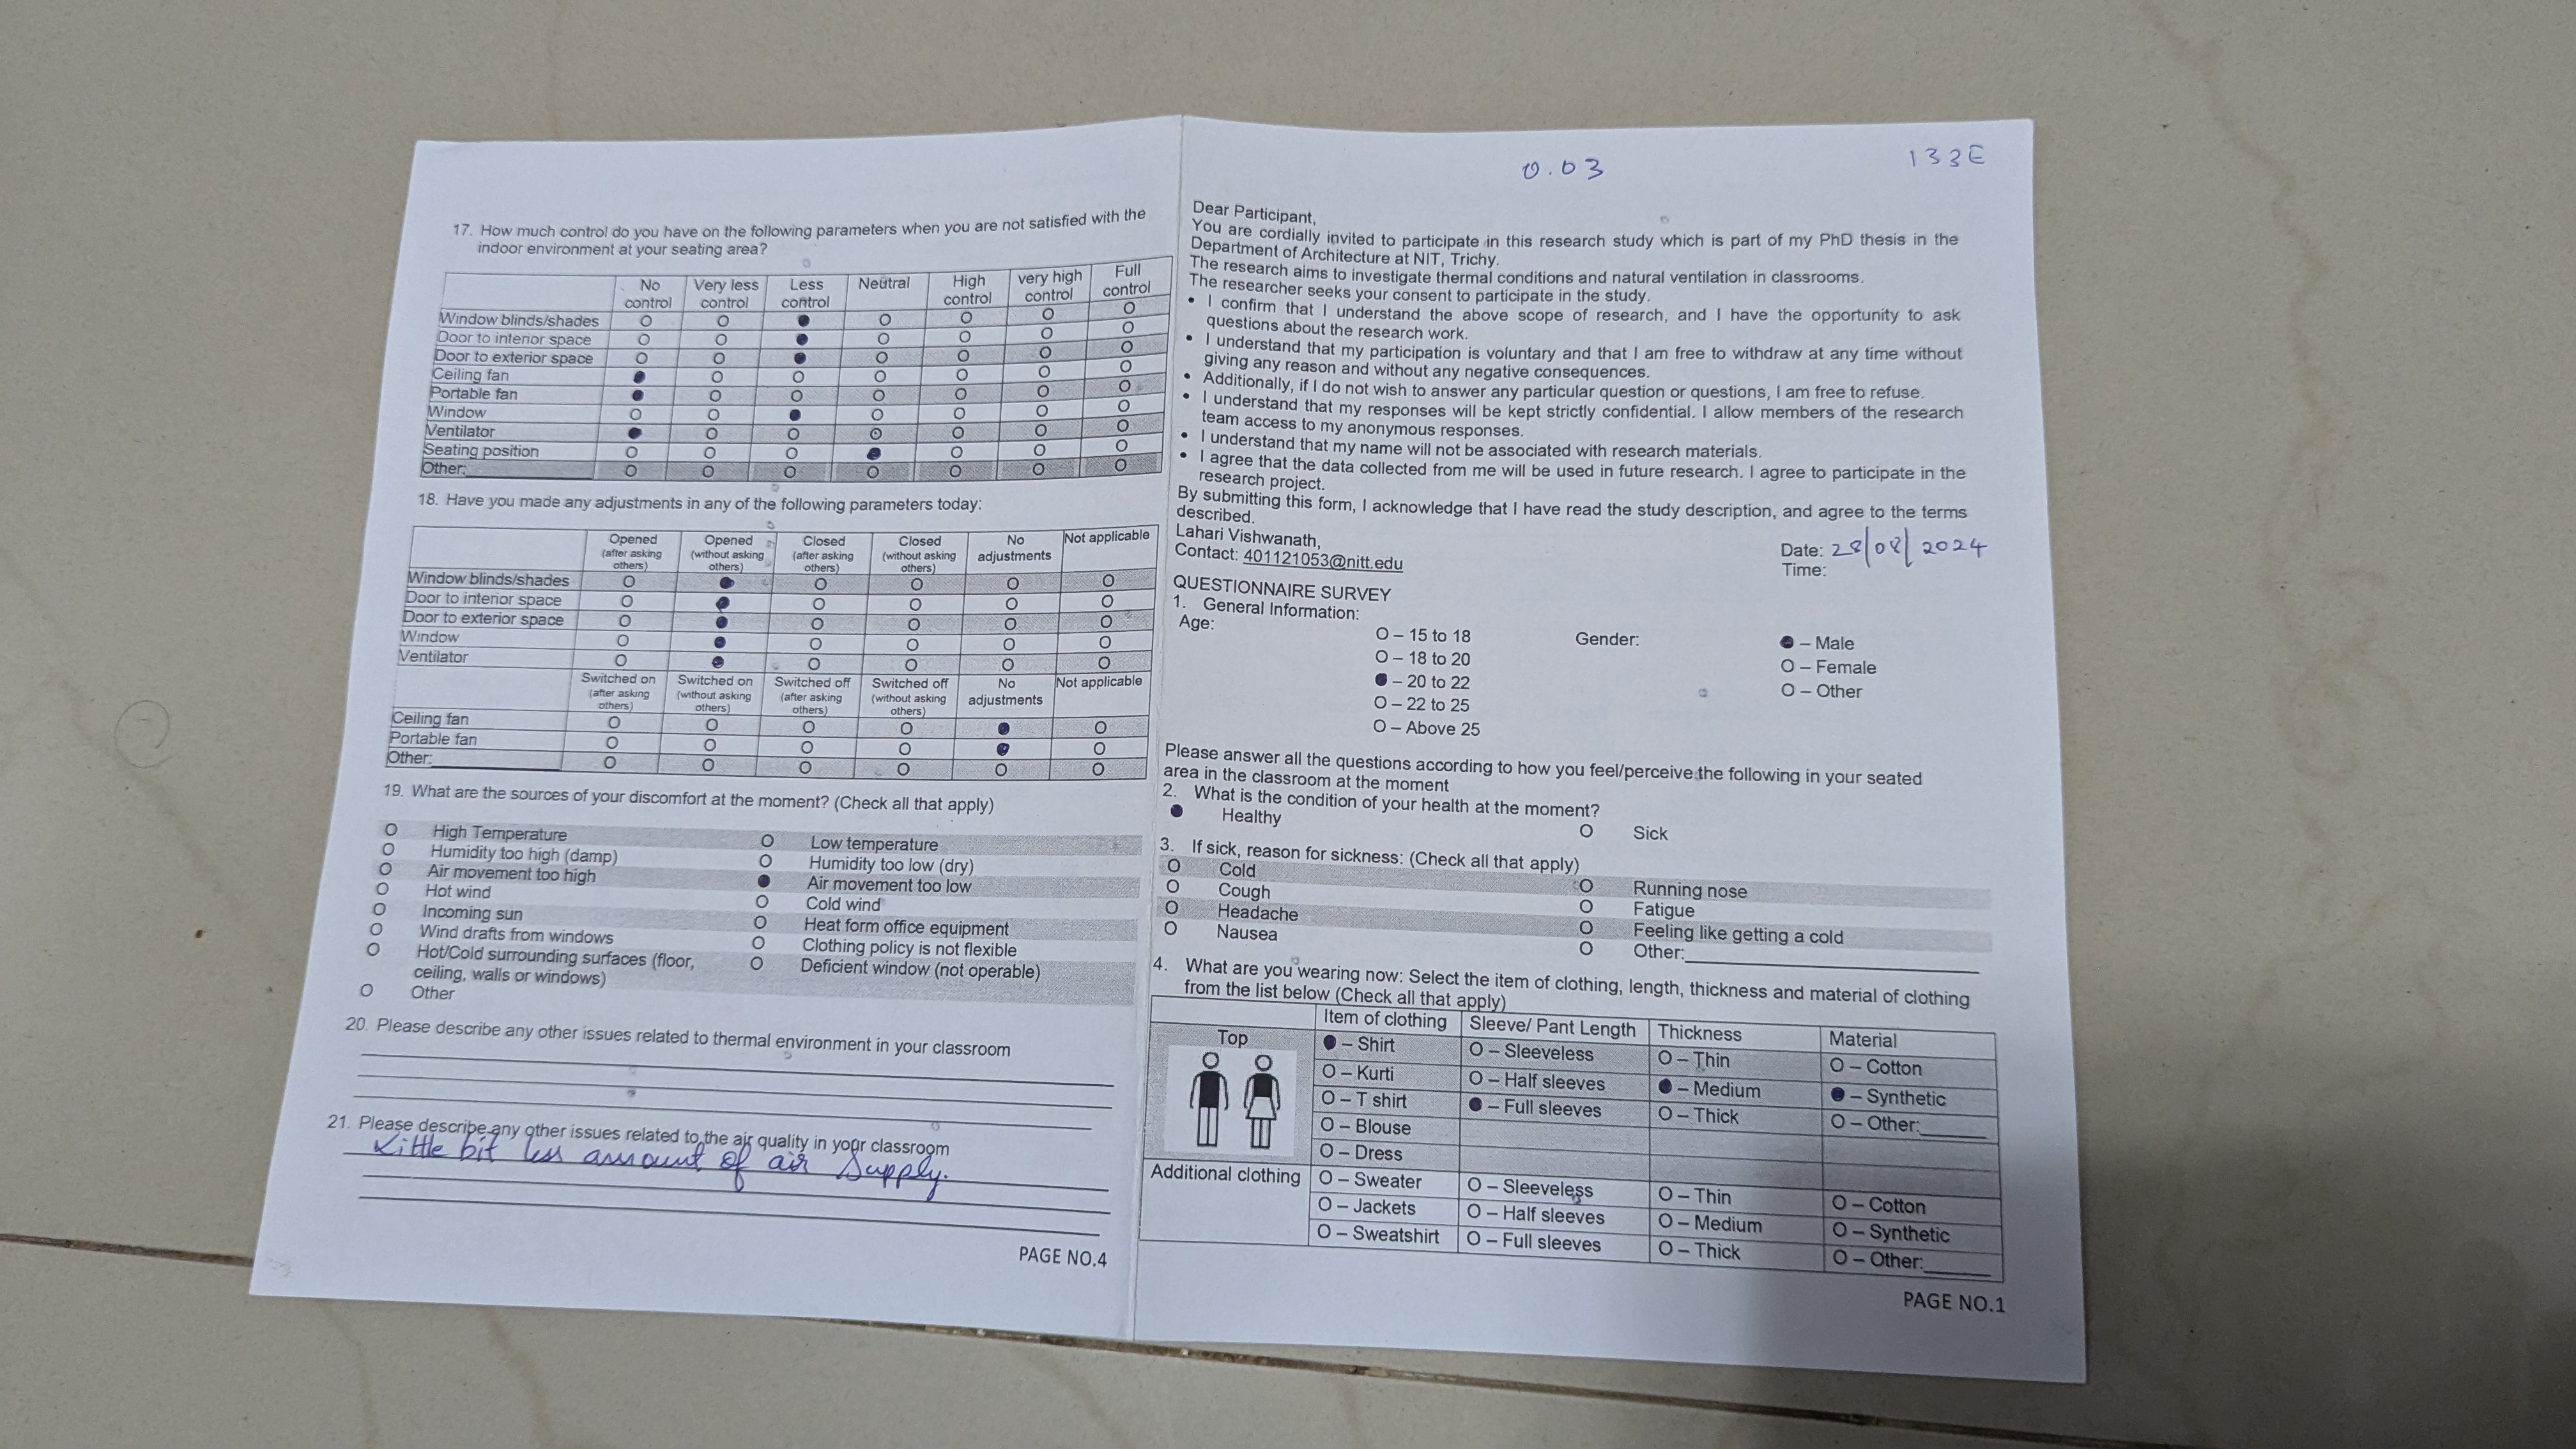 17. How much control do you have on the following parameters when you are not satisfied with the
indoor environment at your seating area?
No control Very less control Less control Neutral High control very high control Full control
Window blinds/shades O O ● O O O O
Door to interior space O O ● O O O O
Door to exterior space O O ● O O O O
Ceiling fan ● O O O O O O
Portable fan ● O O O O O O
Window O O ● O O O O
Ventilator ● O O ⊙ O O O
Seating position O O O ● O O O
Other:________ O O O O O O O
18. Have you made any adjustments in any of the following parameters today:
Opened (after asking others) Opened (without asking others) Closed (after asking others) Closed (without asking others) No adjustments Not applicable
Window blinds/shades O ● O O O O
Door to interior space O ● O O O O
Door to exterior space O ● O O O O
Window O ● O O O O
Ventilator O ● O O O O
Switched on (after asking others) Switched on (without asking others) Switched off (after asking others) Switched off (without asking others) No adjustments Not applicable
Ceiling fan O O O O ● O
Portable fan O O O O ● O
Other:________ O O O O O O
19. What are the sources of your discomfort at the moment? (Check all that apply)
O High Temperature O Low temperature
O Humidity too high (damp) O Humidity too low (dry)
O Air movement too high ● Air movement too low
O Hot wind O Cold wind
O Incoming sun O Heat form office equipment
O Wind drafts from windows O Clothing policy is not flexible
O Hot/Cold surrounding surfaces (floor, O Deficient window (not operable)
ceiling, walls or windows)
O Other
20. Please describe any other issues related to thermal environment in your classroom
21. Please describe any other issues related to the air quality in your classroom
Little bit less amount of air Supply.
PAGE NO.4
0.03
133E
Dear Participant,
You are cordially invited to participate in this research study which is part of my PhD thesis in the
Department of Architecture at NIT, Trichy.
The research aims to investigate thermal conditions and natural ventilation in classrooms.
The researcher seeks your consent to participate in the study.
• I confirm that I understand the above scope of research, and I have the opportunity to ask
questions about the research work.
• I understand that my participation is voluntary and that I am free to withdraw at any time without
giving any reason and without any negative consequences.
• Additionally, if I do not wish to answer any particular question or questions, I am free to refuse.
• I understand that my responses will be kept strictly confidential. I allow members of the research
team access to my anonymous responses.
• I understand that my name will not be associated with research materials.
• I agree that the data collected from me will be used in future research. I agree to participate in the
research project.
By submitting this form, I acknowledge that I have read the study description, and agree to the terms
described.
Lahari Vishwanath,
Contact: 401121053@nitt.edu
Date: 28/08/2024
Time:
QUESTIONNAIRE SURVEY
1. General Information:
Age: Gender:
O – 15 to 18 ● – Male
O – 18 to 20 O – Female
● – 20 to 22 O – Other
O – 22 to 25
O – Above 25
Please answer all the questions according to how you feel/perceive the following in your seated
area in the classroom at the moment
2. What is the condition of your health at the moment?
● Healthy O Sick
3. If sick, reason for sickness: (Check all that apply)
O Cold O Running nose
O Cough O Fatigue
O Headache O Feeling like getting a cold
O Nausea O Other:________
4. What are you wearing now: Select the item of clothing, length, thickness and material of clothing
from the list below (Check all that apply)
Item of clothing Sleeve/ Pant Length Thickness Material
Top ● – Shirt O – Sleeveless O – Thin O – Cotton
O – Kurti O – Half sleeves ● – Medium ● – Synthetic
O – T shirt ● – Full sleeves O – Thick O – Other:______
O – Blouse
O – Dress
Additional clothing O – Sweater O – Sleeveless O – Thin O – Cotton
O – Jackets O – Half sleeves O – Medium O – Synthetic
O – Sweatshirt O – Full sleeves O – Thick O – Other:______
PAGE NO.1